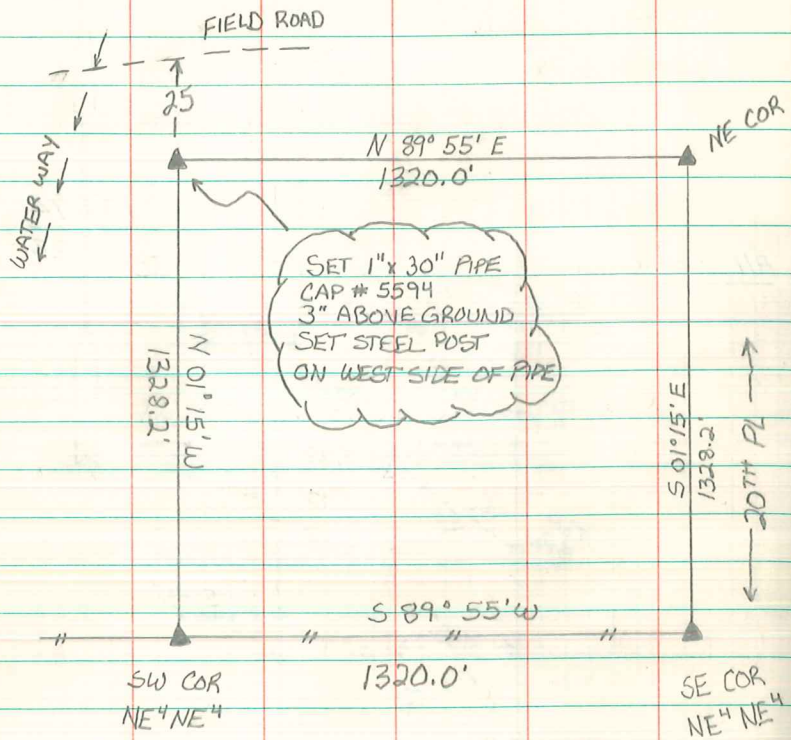 FIELD ROAD
25
WATER WAY
N 89° 55' E
1320.0'
NE COR
SET 1" x 30" PIPE
CAP # 5594
3" ABOVE GROUND
SET STEEL POST
ON WEST SIDE OF PIPE
N 01° 15' W
1328.2'
S 01° 15' E
1328.2'
20TH PL
S 89° 55' W
1320.0'
SW COR
NE⁴ NE⁴
SE COR
NE⁴ NE⁴